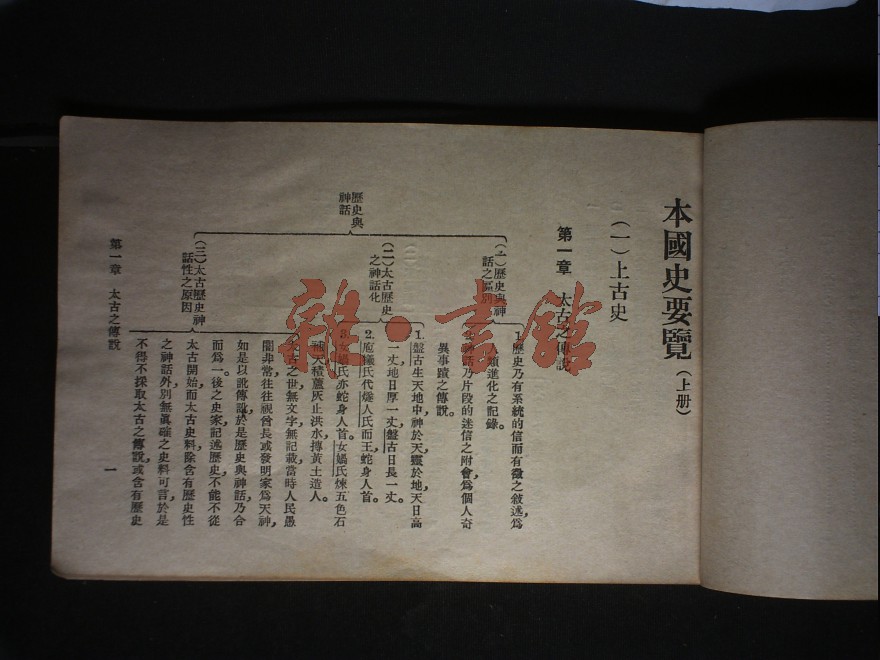 本國史要覽(上册)
(一)上古史
第一章 太古之傳說
歷史與
神話
(一)歷史與神
話之區別
1.歷史乃有系統的信而有徵之敘述,爲
人類進化之記錄。
2.神話乃片段的迷信之附會,爲個人奇
異事蹟之傳說。
(二)太古歷史
之神話化
1.盤古生天地中,神於天,靈於地,天日高
一丈,地日厚一丈,盤古日長一丈。
2.庖犧氏代燧人氏而王,蛇身人首。
3.女媧氏亦蛇身人首。女媧氏煉五色石
補天,積蘆灰止洪水,摶黃土造人。
(三)太古歷史神
話性之原因
太古之世,無文字,無記載,當時人民愚
闇非常,往往視酋長或發明家爲天神,
如是以訛傳訛,於是歷史與神話,乃合
而爲一。後之史家記述歷史,不能不從
太古開始,而太古史料,除含有歷史性
之神話外,別無眞確之史料可言,於是
不得不採取太古之傳說,或含有歷史
第一章 太古之傳說
一
雜·書館